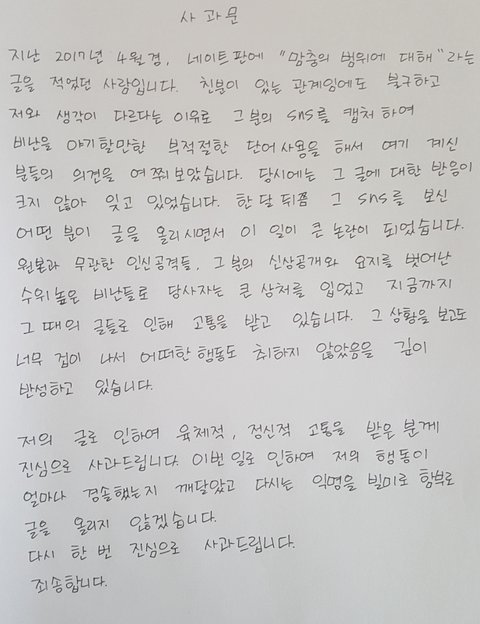 사과문
지난 2017년 4월경, 네이트판에 "맘충의 범위에 대해"라는
글을 적었던 사람입니다. 친분이 있는 관계임에도 불구하고
저와 생각이 다르다는 이유로 그분의 sns를 캡처하여
비난을 야기할만한 부적절한 단어사용을 해서 여기 계신
분들의 의견을 여쭤보았습니다. 당시에는 그 글에 대한 반응이
크지 않아 잊고 있었습니다. 한달 뒤쯤 그 sns를 보신
어떤 분이 글을 올리시면서 이 일이 큰 논란이 되었습니다.
원본과 무관한 인신공격들, 그분의 신상공개와 요지를 벗어난
수위높은 비난들로 당사자는 큰 상처를 입었고 지금까지
그때의 글들로 인해 고통을 받고 있습니다. 그 상황을 보고도
너무 겁이 나서 어떠한 행동도 취하지 않았음을 깊이
반성하고 있습니다.
저의 글로 인하여 육체적, 정신적 고통을 받은 분께
진심으로 사과드립니다. 이번 일로 인하여 저의 행동이
얼마나 경솔했는지 깨달았고 다시는 익명을 빌미로 함부로
글을 올리지 않겠습니다.
다시 한 번 진심으로 사과드립니다.
죄송합니다.